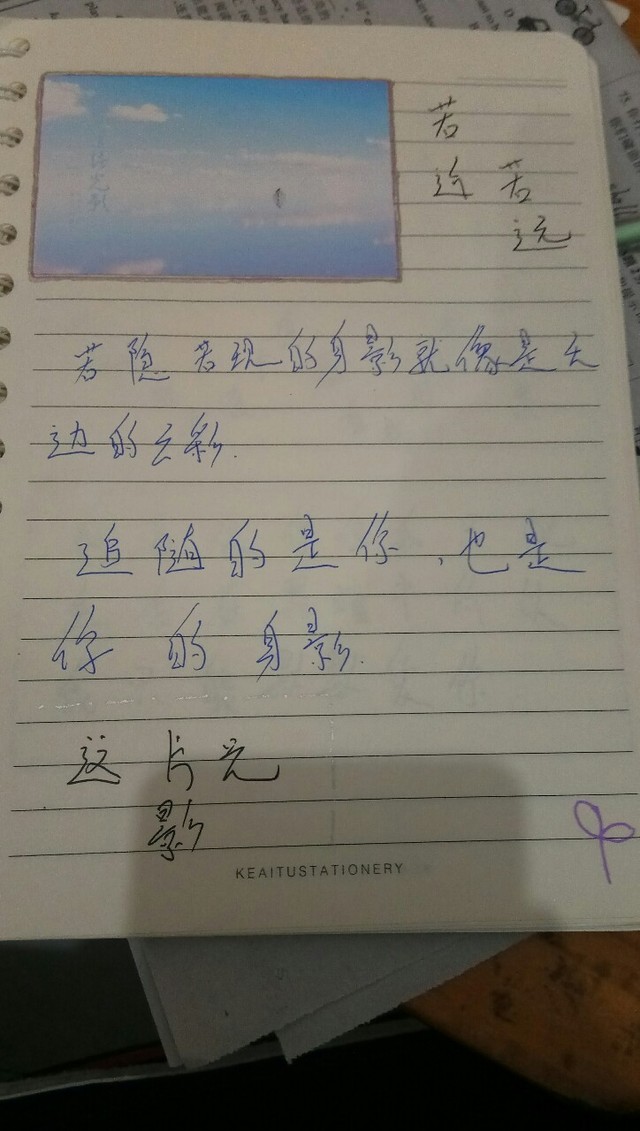 若
近 若
远
若隐若现的身影就像是天
边的云彩.
追随的是你,也是
你的身影.
这片光
影
KEAITUSTATIONERY